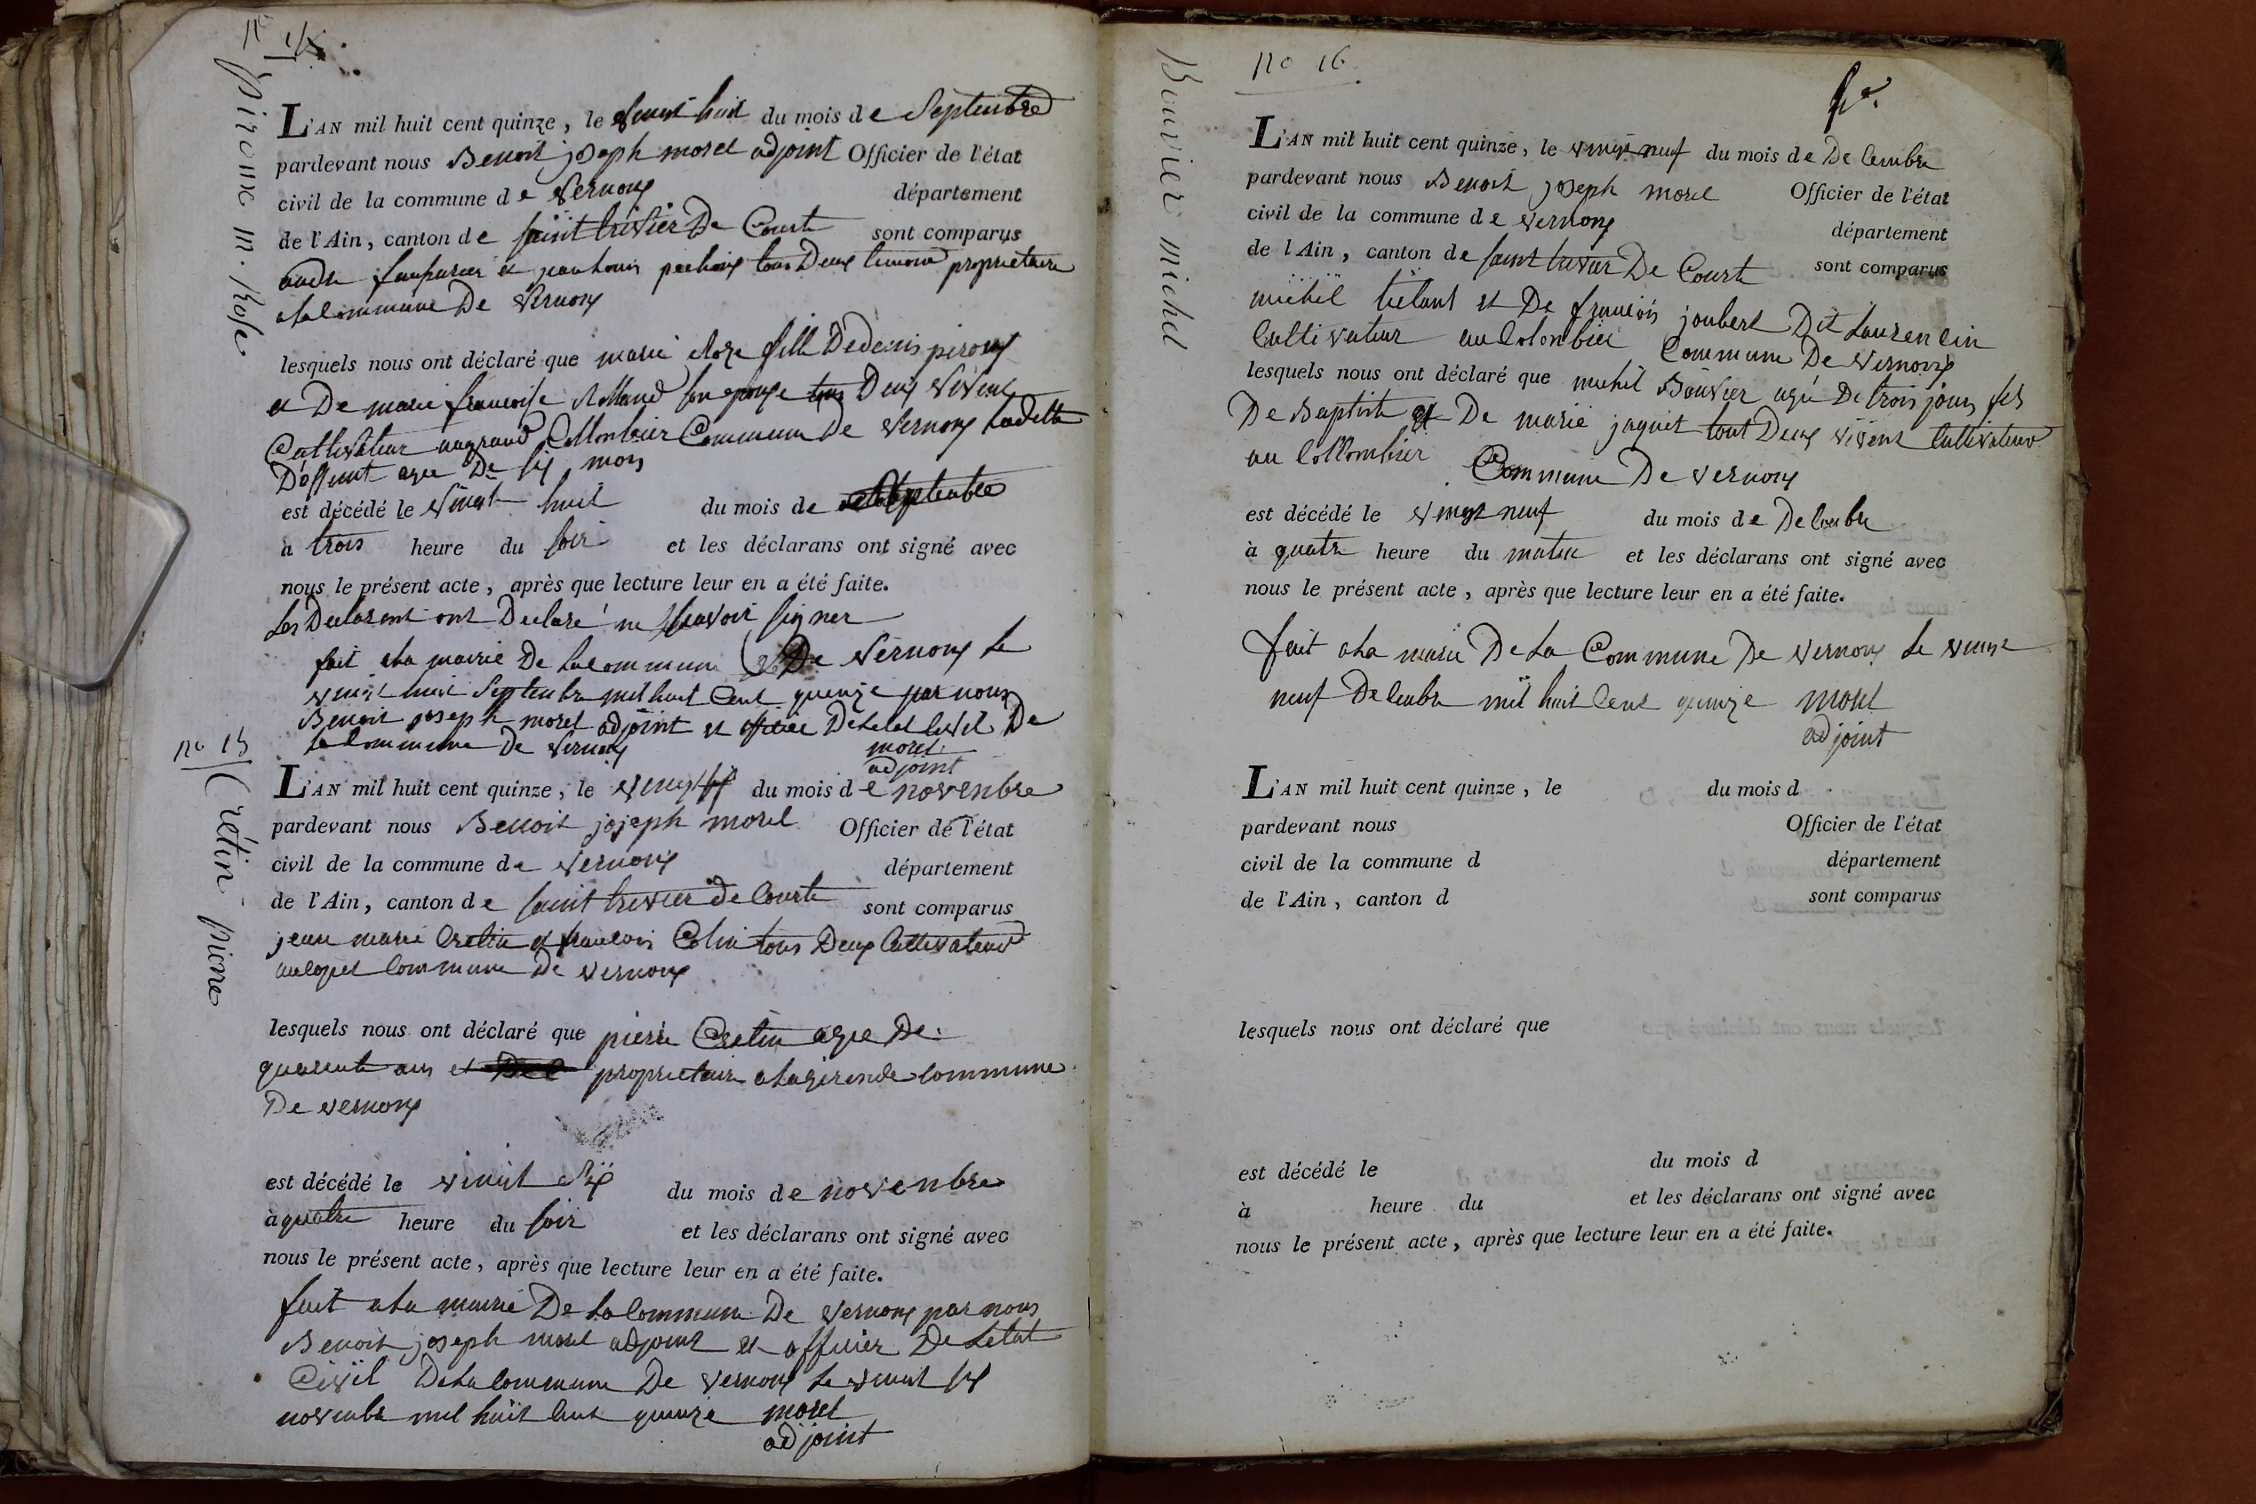 n° 14
piroux m. Rose
L'AN mil huit cent quinze, le vingt huit du mois de Septembre
pardevant nous Benoit joseph morel adjoint Officier de l'état
civil de la commune de Vernoux département
de l'Ain, canton de saint trivier De Courte sont comparus
et jean louis pochoux tous Deux temoin proprietaire
a la commune De Vernoux
lesquels nous ont déclaré que marie Roze fille De denis piroux
et De marie francoise Rolland son epouse tous Deux vivent
Cultivateur au grand Collombier Commune De Vernoux ladette
Deffunt agee De six mois
est décédé le vingt huit du mois de septembre
à trois heure du soir et les déclarans ont signé avec
nous le présent acte, après que lecture leur en a été faite.
Les Declarent ont Declaré ne scavoir signer
fait a la mairie De la commune De Vernoux le
vingt huit Septembre mil huit Cent quinze par nous
Benoit joseph morel adjoint et officier De letat civil De
la commune De Vernoux
morel
adjoint
no 15
Crétin pierre
L'AN mil huit cent quinze, le vingt six du mois de novenbre
pardevant nous Benoit joseph morel Officier de l'état
civil de la commune de Vernoux département
de l'Ain, canton de saint trivier de Courte sont comparus
jean marie Cretin et francois Colin tous Deux Cultivateur
commune De Vernoux
lesquels nous ont déclaré que pierre Cretin agee De
quarente ans et proprietaire a la gironde commune
De vernoux
est décédé le vingt Six du mois de novenbre
à quatre heure du soir et les déclarans ont signé avec
nous le présent acte, après que lecture leur en a été faite.
fait a la mairie De la Commune De Vernoux par nous
Benoit joseph morel adjoint et officier De Letat
Civil De la Commune De Vernoux le vingt six
novembre mil huit cent quinze morel
adjoint
no 16
Bouvier michel
L'AN mil huit cent quinze, le vingt neuf du mois de De cembre
pardevant nous Benoit joseph morel Officier de l'état
civil de la commune de vernoux département
de l'Ain, canton de saint trivier De Court sont comparus
michel et De francois joubert Dit Laurencin
Cultivateur au Colonbier Commune De Vernoux
lesquels nous ont déclaré que michel Bouvier agé De trois jours fils
De Baptiste et De marie jaquet tout Deux vivent Cultivateur
au Collombier Commune De vernoux
est décédé le vingt neuf du mois de Decembre
à quatre heure du matin et les déclarans ont signé avec
nous le présent acte, après que lecture leur en a été faite.
fait a la mairie De La Commune De vernoux Le vingt
neuf Decembre mil huit Cent quinze morel
adjoint
L'AN mil huit cent quinze, le du mois d
pardevant nous Officier de l'état
civil de la commune d département
de l'Ain, canton d sont comparus
lesquels nous ont déclaré que
est décédé le du mois d
à heure du et les déclarans ont signé avec
nous le présent acte, après que lecture leur en a été faite.